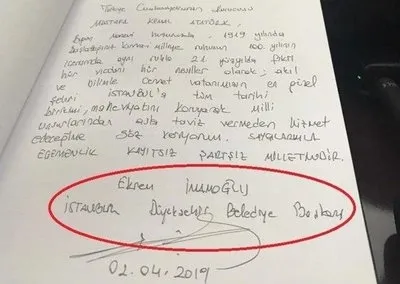 Türkiye Cumhuriyetinin kurucusu
MUSTAFA KEMAL ATATÜRK.
manevi huzurunuzda, 1919 yılında
başlattığınız kuvayi milliye ruhunun 100. yılının
aynı ruhla 21. yüzyılda fikri
hür vicdanı hür nesiller olarak; akıl
ve bilimle cennet vatanımızın en güzel
şehri İSTANBUL'a tüm tarihi
maneviyatını koruyarak milli
unsurlarından asla taviz vermeden hizmet
edeceğime SÖZ veriyorum. SAYGILARIMLA
EGEMENLİK KAYITSIZ ŞARTSIZ MİLLETİNDİR.
Ekrem İMAMOĞLU
İSTANBUL Büyükşehir Belediye Başkanı
02.04.2019